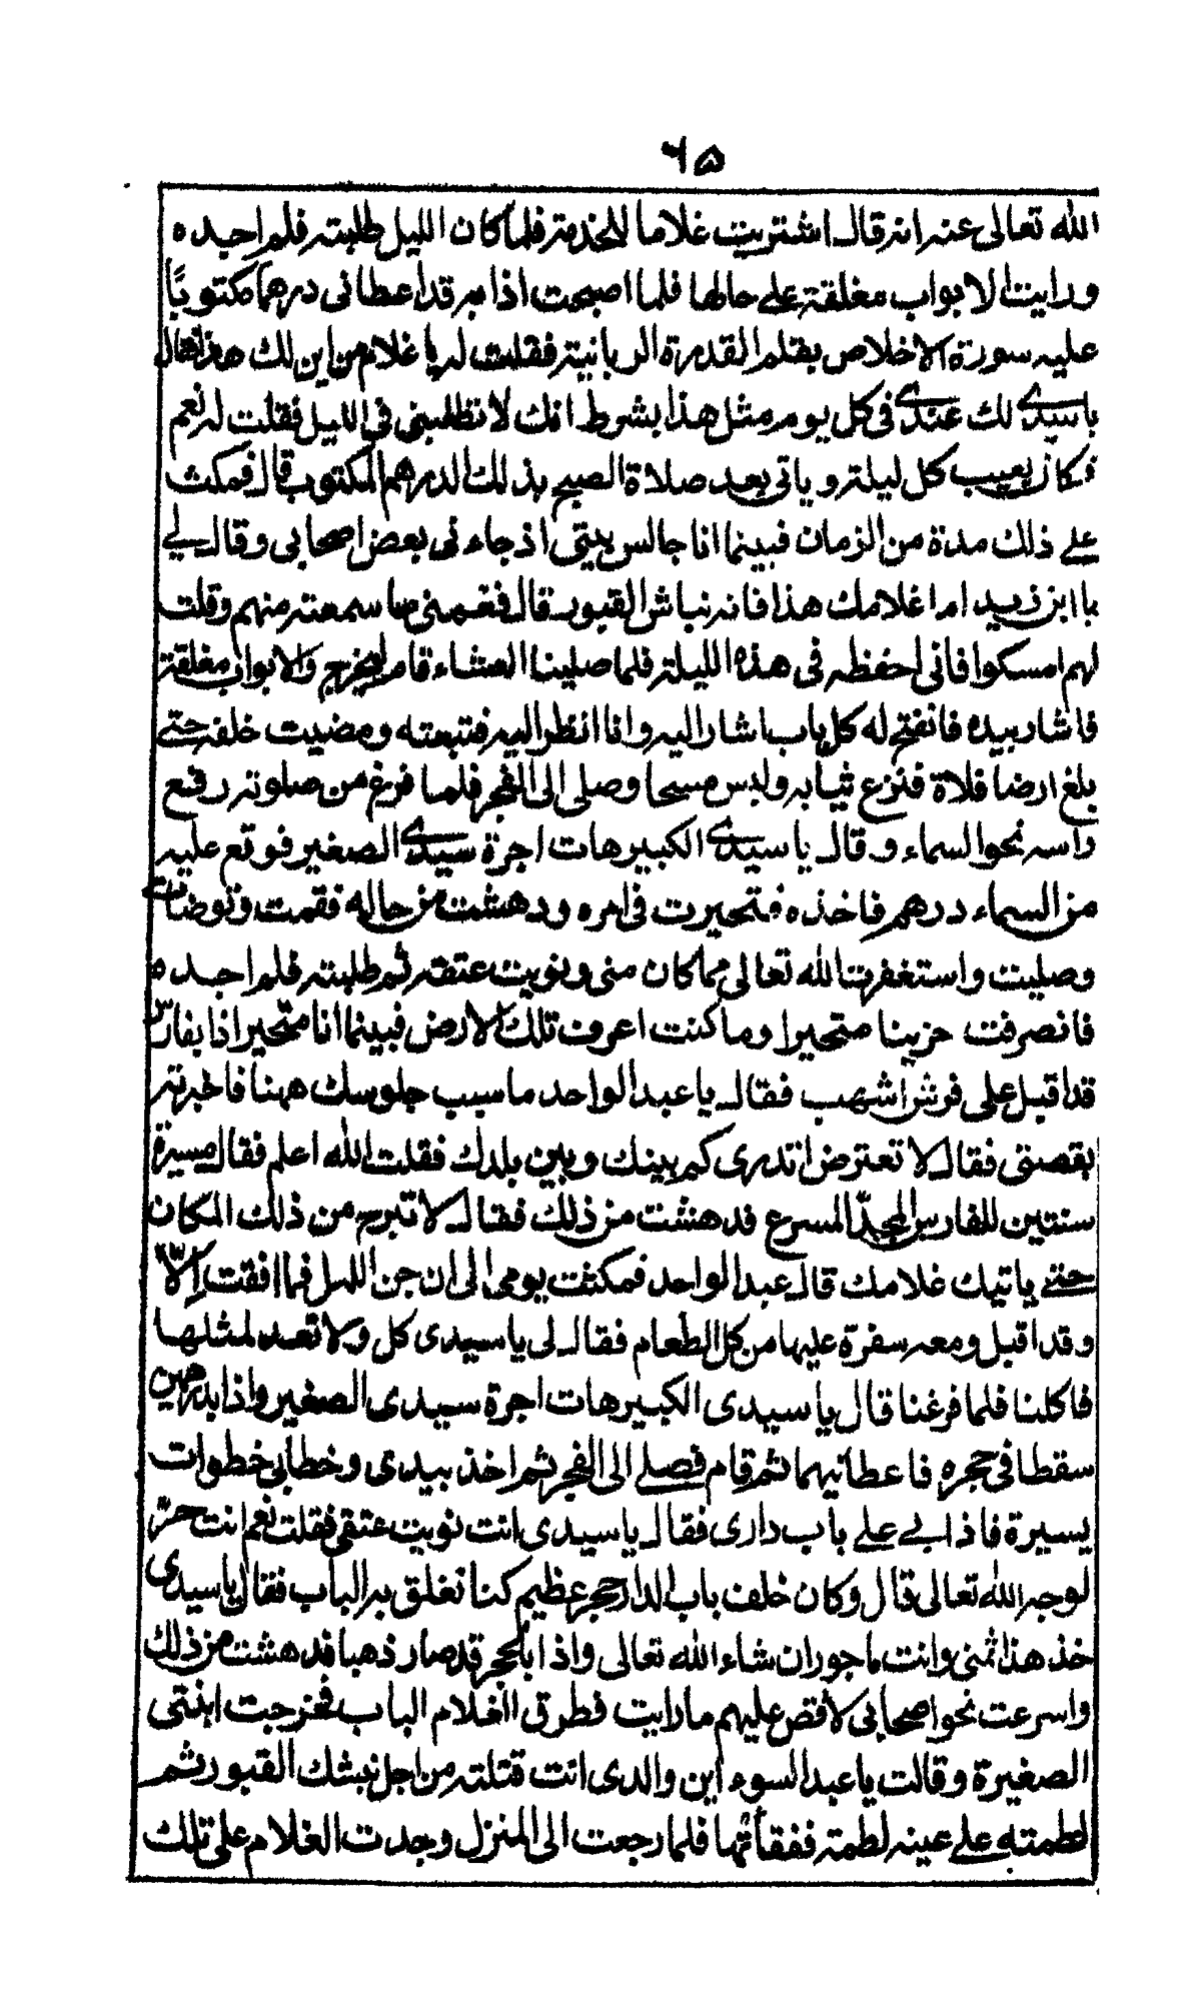 ٦٥
الله تعالى عنه انه قال اشتريت غلاما للخدمة فلما كان الليل طلبته فلم اجده
ورايت الابواب مغلقة على حالها فلما اصبحت اذا به قد اعطانى درهما مكتوبًا
عليه سورة الاخلاص بقلم القدرة الربانية فقلت له يا غلام من اين لك هذا فقال
ياسيدى لك عندى فى كل يوم مثل هذا بشرط انك لا تطلبنى فى الليل فقلت له نعم
فكان يغيب كل ليلة وياتى بعد صلاة الصبح بذلك الدرهم المكتوب قال فمكث
على ذلك مدة من الزمان فبينما انا جالس ببيتى اذ جاءنى بعض اصحابى وقال لى
يا ابن زيد اما غلامك هذا فانه نباش القبور قال فغمنى ما سمعته منهم وقلت
لهم امسكوا فانى احفظه فى هذه الليلة فلما صلينا العشاء قام ليخرج والابواب مغلقة
فاشار بيده فانفتح له كل باب اشار اليه وانا انظر اليه فتبعته ومضيت خلفه حتى
بلغ ارضا فلاة فنزع ثيابه ولبس مسحا وصلى الى الفجر فلما فرغ من صلوته رفع
راسه نحو السماء وقال يا سيدى الكبير هات اجرة سيدى الصغير فوقع عليه
من السماء درهم فاخذه فتحيرت فى امره ودهشت من حاله فقمت وتوضات
وصليت واستغفرت الله تعالى مما كان منى ونويت عتقه ثم طلبته فلم اجده
فانصرفت حزينا متحيرا وما كنت اعرف تلك الارض فبينما انا متحير اذا بفارس
قد اقبل على فرس اشهب فقال يا عبد الواحد ما سبب جلوسك ههنا فاخبرته
بقصتى فقال لا تعترض اتدرى كم بينك وبين بلدك فقلت الله اعلم فقال مسيرة
سنتين للفارس المجدّ المسرع فدهشت من ذلك فقال لا تبرح من ذلك المكان
حتى ياتيك غلامك قال عبد الواحد فمكثت يومى الى ان جن الليل فما افقت الّا
وقد اقبل ومعه سفرة عليها من كل الطعام فقال لى ياسيدى كل ولا تعد لمثلها
فاكلنا فلما فرغنا قال يا سيدى الكبير هات اجرة سيدى الصغير واذا بدرهمين
سقطا فى حجره فاعطانيهما ثم قام فصلى الى الفجر ثم اخذ بيدى وخطا بى خطوات
يسيرة فاذا بى على باب دارى فقال يا سيدى انت نويت عتقى فقلت نعم انت حرّ
لوجه الله تعالى قال وكان خلف باب الدار حجر عظيم كنا نغلق به الباب فقال يا سيدى
خذ هذا ثمنى وانت ماجور ان شاء الله تعالى واذا بالحجر قد صار ذهبا فدهشت من ذلك
واسرعت نحو اصحابى لاقص عليهم ما رايت فطرق الغلام الباب فخرجت ابنتى
الصغيرة وقالت يا عبد السوء اين والدى انت قتلته من اجل نبشك القبور ثم
لطمته على عينه لطمة ففقأتها فلما رجعت الى المنزل وجدت الغلام على تلك